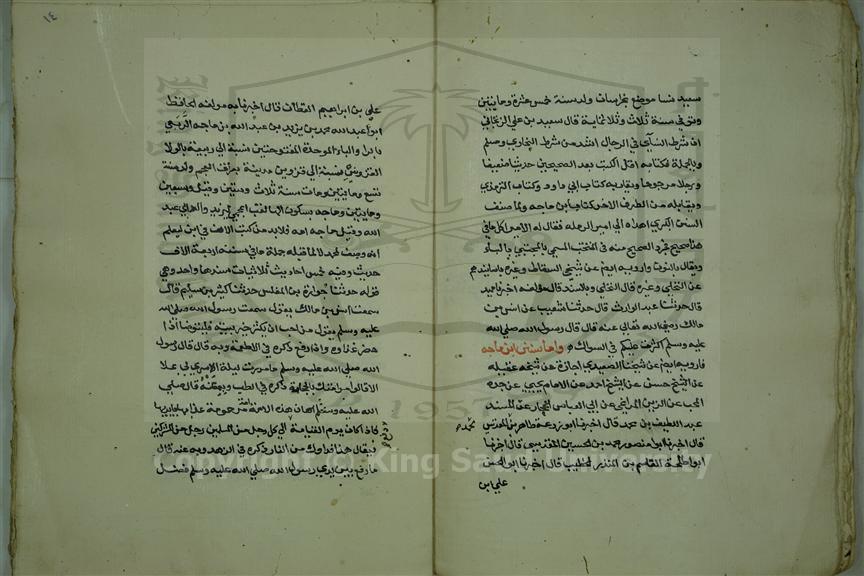 سبيد نسا موضع بخراسان ولد سنة خمس عشرة ومايتين
وتوفي سنة ثلاث وثلاثماية قال سبيد بن علي الزنجاني
ان شرط النسآئي في الرجال اشد من شرط البخاري ومسلم
وبالجملة فكتابه اقل الكتب بعد الصحيحين حديثا ضعيفا
ورجلا مجروحا ويقاربه كتاب ابي داود وكتاب الترمذي
ويقابله من الطرف الاخر كتاب ابن ماجه ولما صنف
السنن الكبرى اهداه الى امير الرملة فقال له الامير اكل مافي
هذا صحيح فجرد الصحيح منه في المسمى بالمجتبى بالباء
ويقال بالنون وارويه ايض عن شيخي السقاط وغيره باسانيدهم
عن النخلي وغيره قال النخلي وبالسند قال مولفه اخبرنا حميد
قال حدثنا عبد الوارث قال حدثنا شعيب عن انس بن
مالك رضي الله تعالى عنه قال قال رسول الله صلى الله
عليه وسلم اكثرت عليكم في السواك واما سنن ابن ماجه
فارويه ايض عن شيخنا الصعيدي اجازة عن شيخه عقيله
عن الشيخ حسن عن الشيخ احمد عن الامام يحيى عن جده
المحب عن الزين المراغي عن ابي العباس الحجار عن المسند
عبد اللطيف بن محمد قال اخبرنا ابو زرعة طاهر بن المقدسي
قال اخبرنا ابو منصور محمد بن الحسين المقدسي قال اخبرنا
ابو طلحة القاسم بن المنذر الخطيب قال اخبرنا ابو الحسن
علي بن
١٤
علي بن ابراهيم القطان قال اخبرنا به مولفه الحافظ
ابو عبد الله محمد بن يزيد بن عبد الله بن ماجه الربعي
بالراء والباء الموحدة المفتوحتين نسبة الى ربيعة بالولا
القزويني نسبة الى قزوين مدينة بعراق العجم ولد سنة
تسع ومايتين ومات سنة ثلاث وقيل وسبعين
ومايتين وماجه بسكون الها لقب اعجمي ليزيد والد ابي عبد
الله وقيل ماجه امه فلابد من كتب الالف في ابن ليعلم
انه وصف لمحمد لا لما قبله جملة مافي سننه اربعة الاف
حديث وفيه خمس احاديث ثلاثيات سندها واحد وهي
قوله حدثنا جبارة بن المغلس حدثنا كثير بن سليم قال
سمعت انس بن مالك يقول سمعت رسول الله صلى الله
عليه وسلم يقول من احب ان يكثر خير بيته فليتوضا اذا
حضر غداوه واذا رفع ذكره في الاطعمة وبه قال قال رسول
الله صلى الله عليه وسلم ما مررت ليلة الاسري بي بملا
الا قالوا مر امتك بالحجامة ذكره في الطب وبه عنه قال صلى
الله عليه وسلم ان هذه الامة مرحومة عذابها بايديها
فاذا كان يوم القيامة دفع الى كل رجل من المسلمين رجل من المشركين
فيقال هذا فداوك من النار ذكره في الزهد وبه عنه قال
ما رفع من بين يدي رسول الله صلى الله عليه وسلم فضل
1957
Copyright © King Saud University